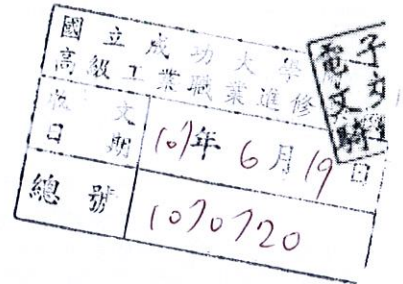 國立成功大學附
高級工業職業進修
收文
日期 107年6月19日
總號 1070720
電子文
文騎